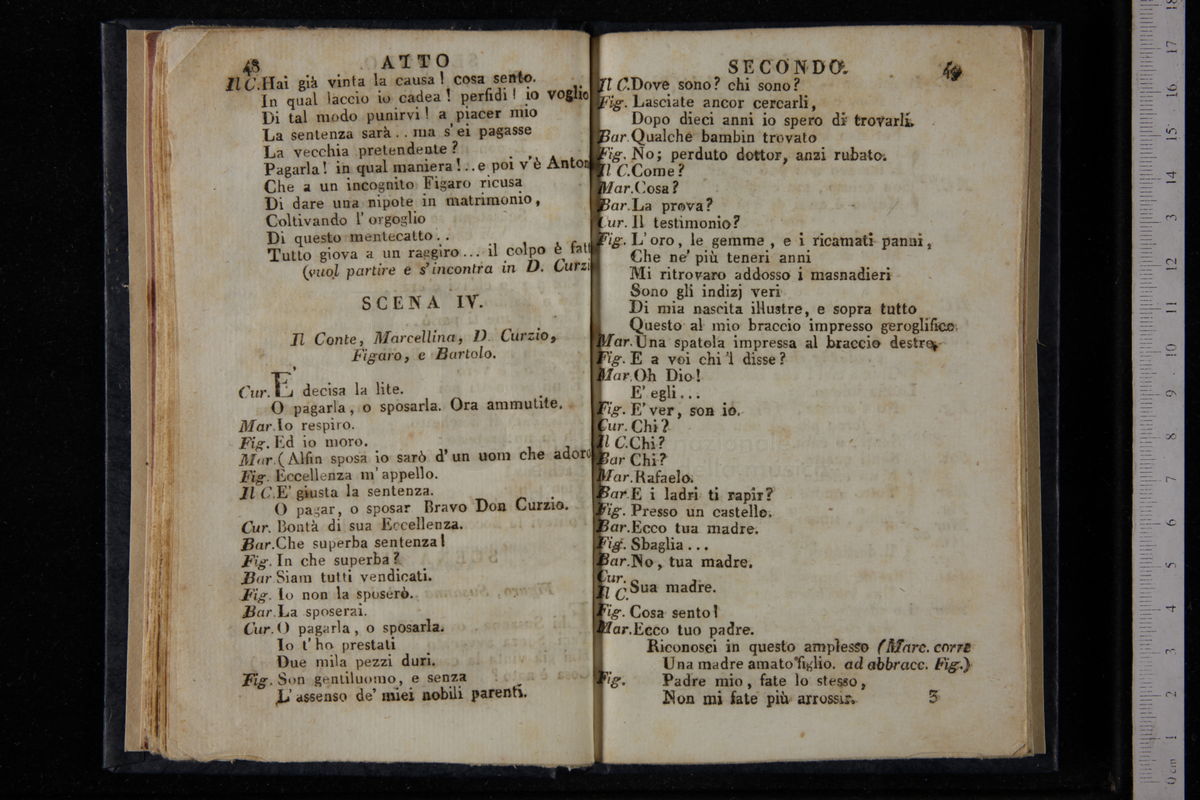 48 ATTO
Il C. Hai già vinta la causa! cosa sento.
In qual laccio io cadea! perfidi! io voglio
Di tal modo punirvi! a piacer mio
La sentenza sarà.. ma s'ei pagasse
La vecchia pretendente?
Pagarla! in qual maniera!.. e poi v'è Anton
Che a un incognito Figaro ricusa
Di dare una nipote in matrimonio,
Coltivando l'orgoglio
Di questo mentecatto..
Tutto giova a un raggiro... il colpo è fatt
(vuol partire e s'incontra in D. Curzi
SCENA IV.
Il Conte, Marcellina, D. Curzio,
Figaro, e Bartolo.
Cur. E' decisa la lite.
O pagarla, o sposarla. Ora ammutite.
Mar. Io respiro.
Fig. Ed io moro.
Mar. (Alfin sposa io sarò d'un uom che adoro
Fig. Eccellenza m'appello.
Il C. E' giusta la sentenza.
O pagar, o sposar Bravo Don Curzio.
Cur. Bontà di sua Eccellenza.
Bar. Che superba sentenza!
Fig. In che superba?
Bar Siam tutti vendicati.
Fig. Io non la sposerò.
Bar. La sposerai.
Cur. O pagarla, o sposarla.
Io t'ho prestati
Due mila pezzi duri.
Fig. Son gentiluomo, e senza
L'assenso de' miei nobili parenti.
SECONDO. 49
Il C. Dove sono? chi sono?
Fig. Lasciate ancor cercarli,
Dopo dieci anni io spero di trovarli.
Bar. Qualche bambin trovato
Fig. No; perduto dottor, anzi rubato.
Il C. Come?
Mar. Cosa?
Bar. La prova?
Cur. Il testimonio?
Fig. L'oro, le gemme, e i ricamati panni,
Che ne' più teneri anni
Mi ritrovaro addosso i masnadieri
Sono gli indizj veri
Di mia nascita illustre, e sopra tutto
Questo al mio braccio impresso geroglifico.
Mar. Una spatola impressa al braccio destro,
Fig. E a voi chi 'l disse?
Mar. Oh Dio!
E' egli...
Fig. E' ver, son io.
Cur. Chi?
Il C. Chi?
Bar Chi?
Mar. Rafaelo.
Bar. E i ladri ti rapìr?
Fig. Presso un castello.
Bar. Ecco tua madre.
Fig. Sbaglia...
Bar. No, tua madre.
Cur.
Il C. Sua madre.
Fig. Cosa sento!
Mar. Ecco tuo padre.
Riconosci in questo amplesso (Marc. corre
Una madre amato figlio. ad abbracc. Fig.)
Fig. Padre mio, fate lo stesso,
Non mi fate più arrossir. 3
0 cm 1 2 3 4 5 6 7 8 9 10 11 12 13 14 15 16 17 18